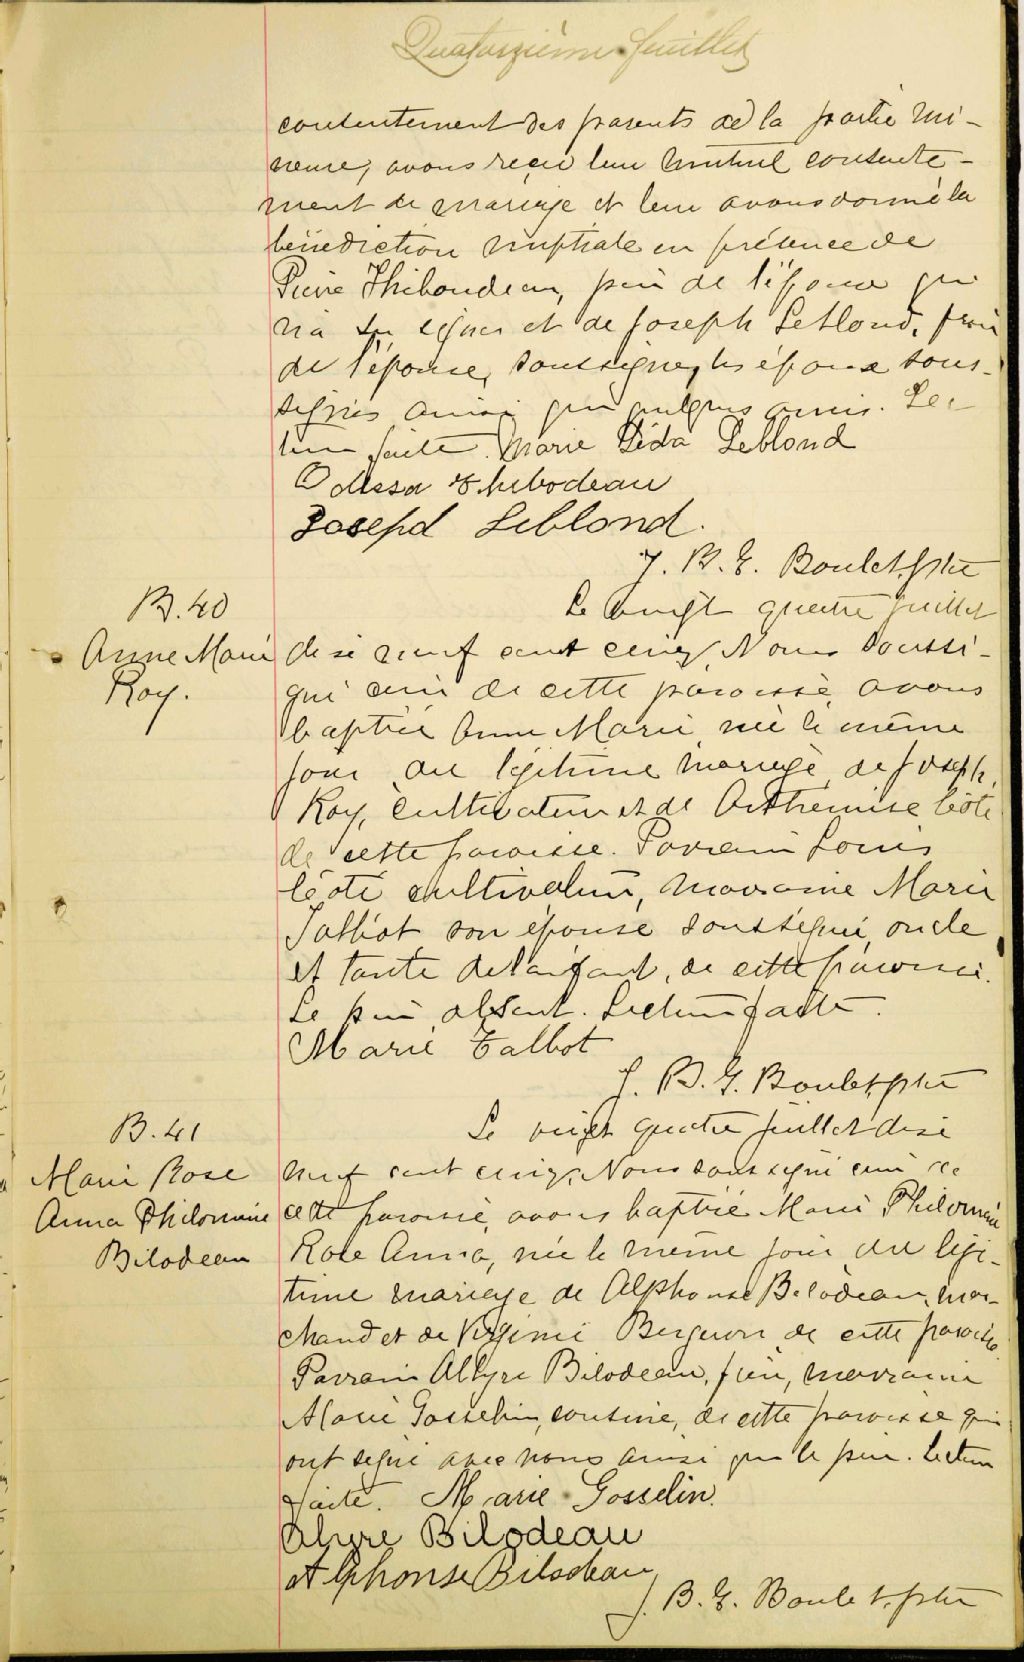 Quatorzième feuillet
consentement des parents de la partie mi-
neure, avons reçu leur mutuel consente-
ment de mariage et leur avons donné la
bénédiction nuptiale en présence de
Pierre Thiboudeau, père de l'époux qui
n'a su signer et de Joseph Leblond, père
de l'épouse, soussigné, les époux sous-
signés ainsi que quelques amis. Lec-
ture faite. Marie Léda Leblond
Odessa Thibodeau
Joseph Leblond.
J. B. E. Boulet, ptre
B. 40
Anne Marie
Roy.
Le vingt quatre juillet
dix neuf cent cinq, Nous soussi-
gné curé de cette paroisse avons
baptisé Anne Marie née le même
jour du légitime mariage de Joseph
Roy, cultivateur et de Arthémise Côté
de cette paroisse. Parrain Louis
Côté cultivateur, marraine Marie
Talbot son épouse soussigné, oncle
et tante de l'enfant, de cette paroisse.
Le père absent. Lecture faite.
Marie Talbot
J. B. E. Boulet, ptre
B. 41
Marie Rose
Anna Philomène
Bilodeau
Le vingt quatre juillet dix
neuf cent cinq, Nous soussigné curé de
cette paroisse, avons baptisé Marie Philomène
Rose Anna, née le même jour du légi-
time mariage de Alphonse Bilodeau, mar-
chand et de Virginie Bergeron de cette paroisse
Parrain Allyre Bilodeau, frère, marraine
Marie Gosselin, cousine, de cette paroisse qui
ont signé avec nous ainsi que le père. Lecture
faite. Marie Gosselin
Alyre Bilodeau
Alphonse Bilodeau
J. B. E. Boulet, ptre